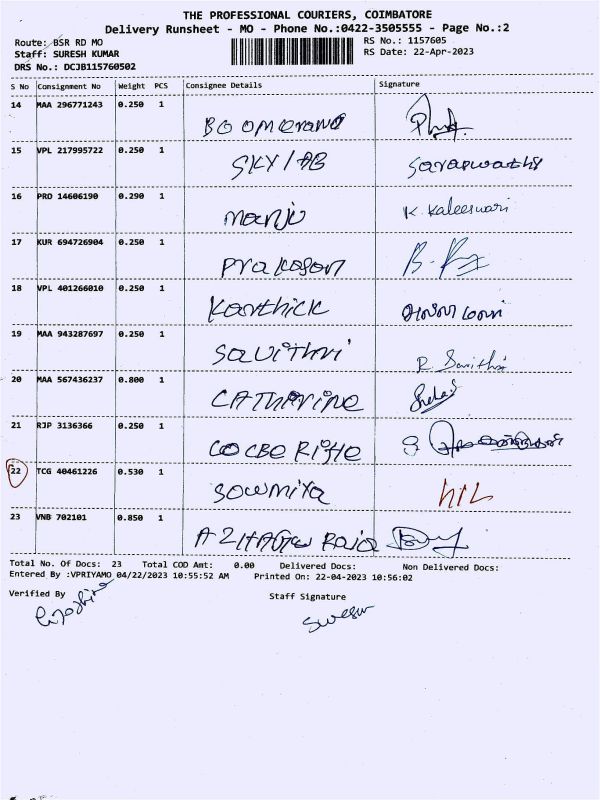 THE PROFESSIONAL COURIERS, COIMBATORE
Delivery Runsheet - MO - Phone No.:0422-3505555 - Page No.:2
Route: BSR RD MO RS No.: 1157605
Staff: SURESH KUMAR RS Date: 22-Apr-2023
DRS No.: DCJB115760502
S No Consignment No Weight PCS Consignee Details Signature
14 MAA 296771243 0.250 1 Boomerang
15 VPL 217995722 0.250 1 SKYLAB Saraswathi
16 PRO 14606190 0.290 1 manju K. Kaleeswari
17 KUR 694726904 0.250 1 Prakasam
18 VPL 401266010 0.250 1 Karthick
19 MAA 943287697 0.250 1 Savithri R. Savithri
20 MAA 567436237 0.800 1 CATHARINE
21 RJP 3136366 0.250 1
22 TCG 40461226 0.530 1 Sowmiya
23 VNB 702101 0.850 1 AZHAGU Raja
Total No. Of Docs: 23 Total COD Amt: 0.00 Delivered Docs: Non Delivered Docs:
Entered By :VPRIYAMO 04/22/2023 10:55:52 AM Printed On: 22-04-2023 10:56:02
Verified By Staff Signature
Suresh